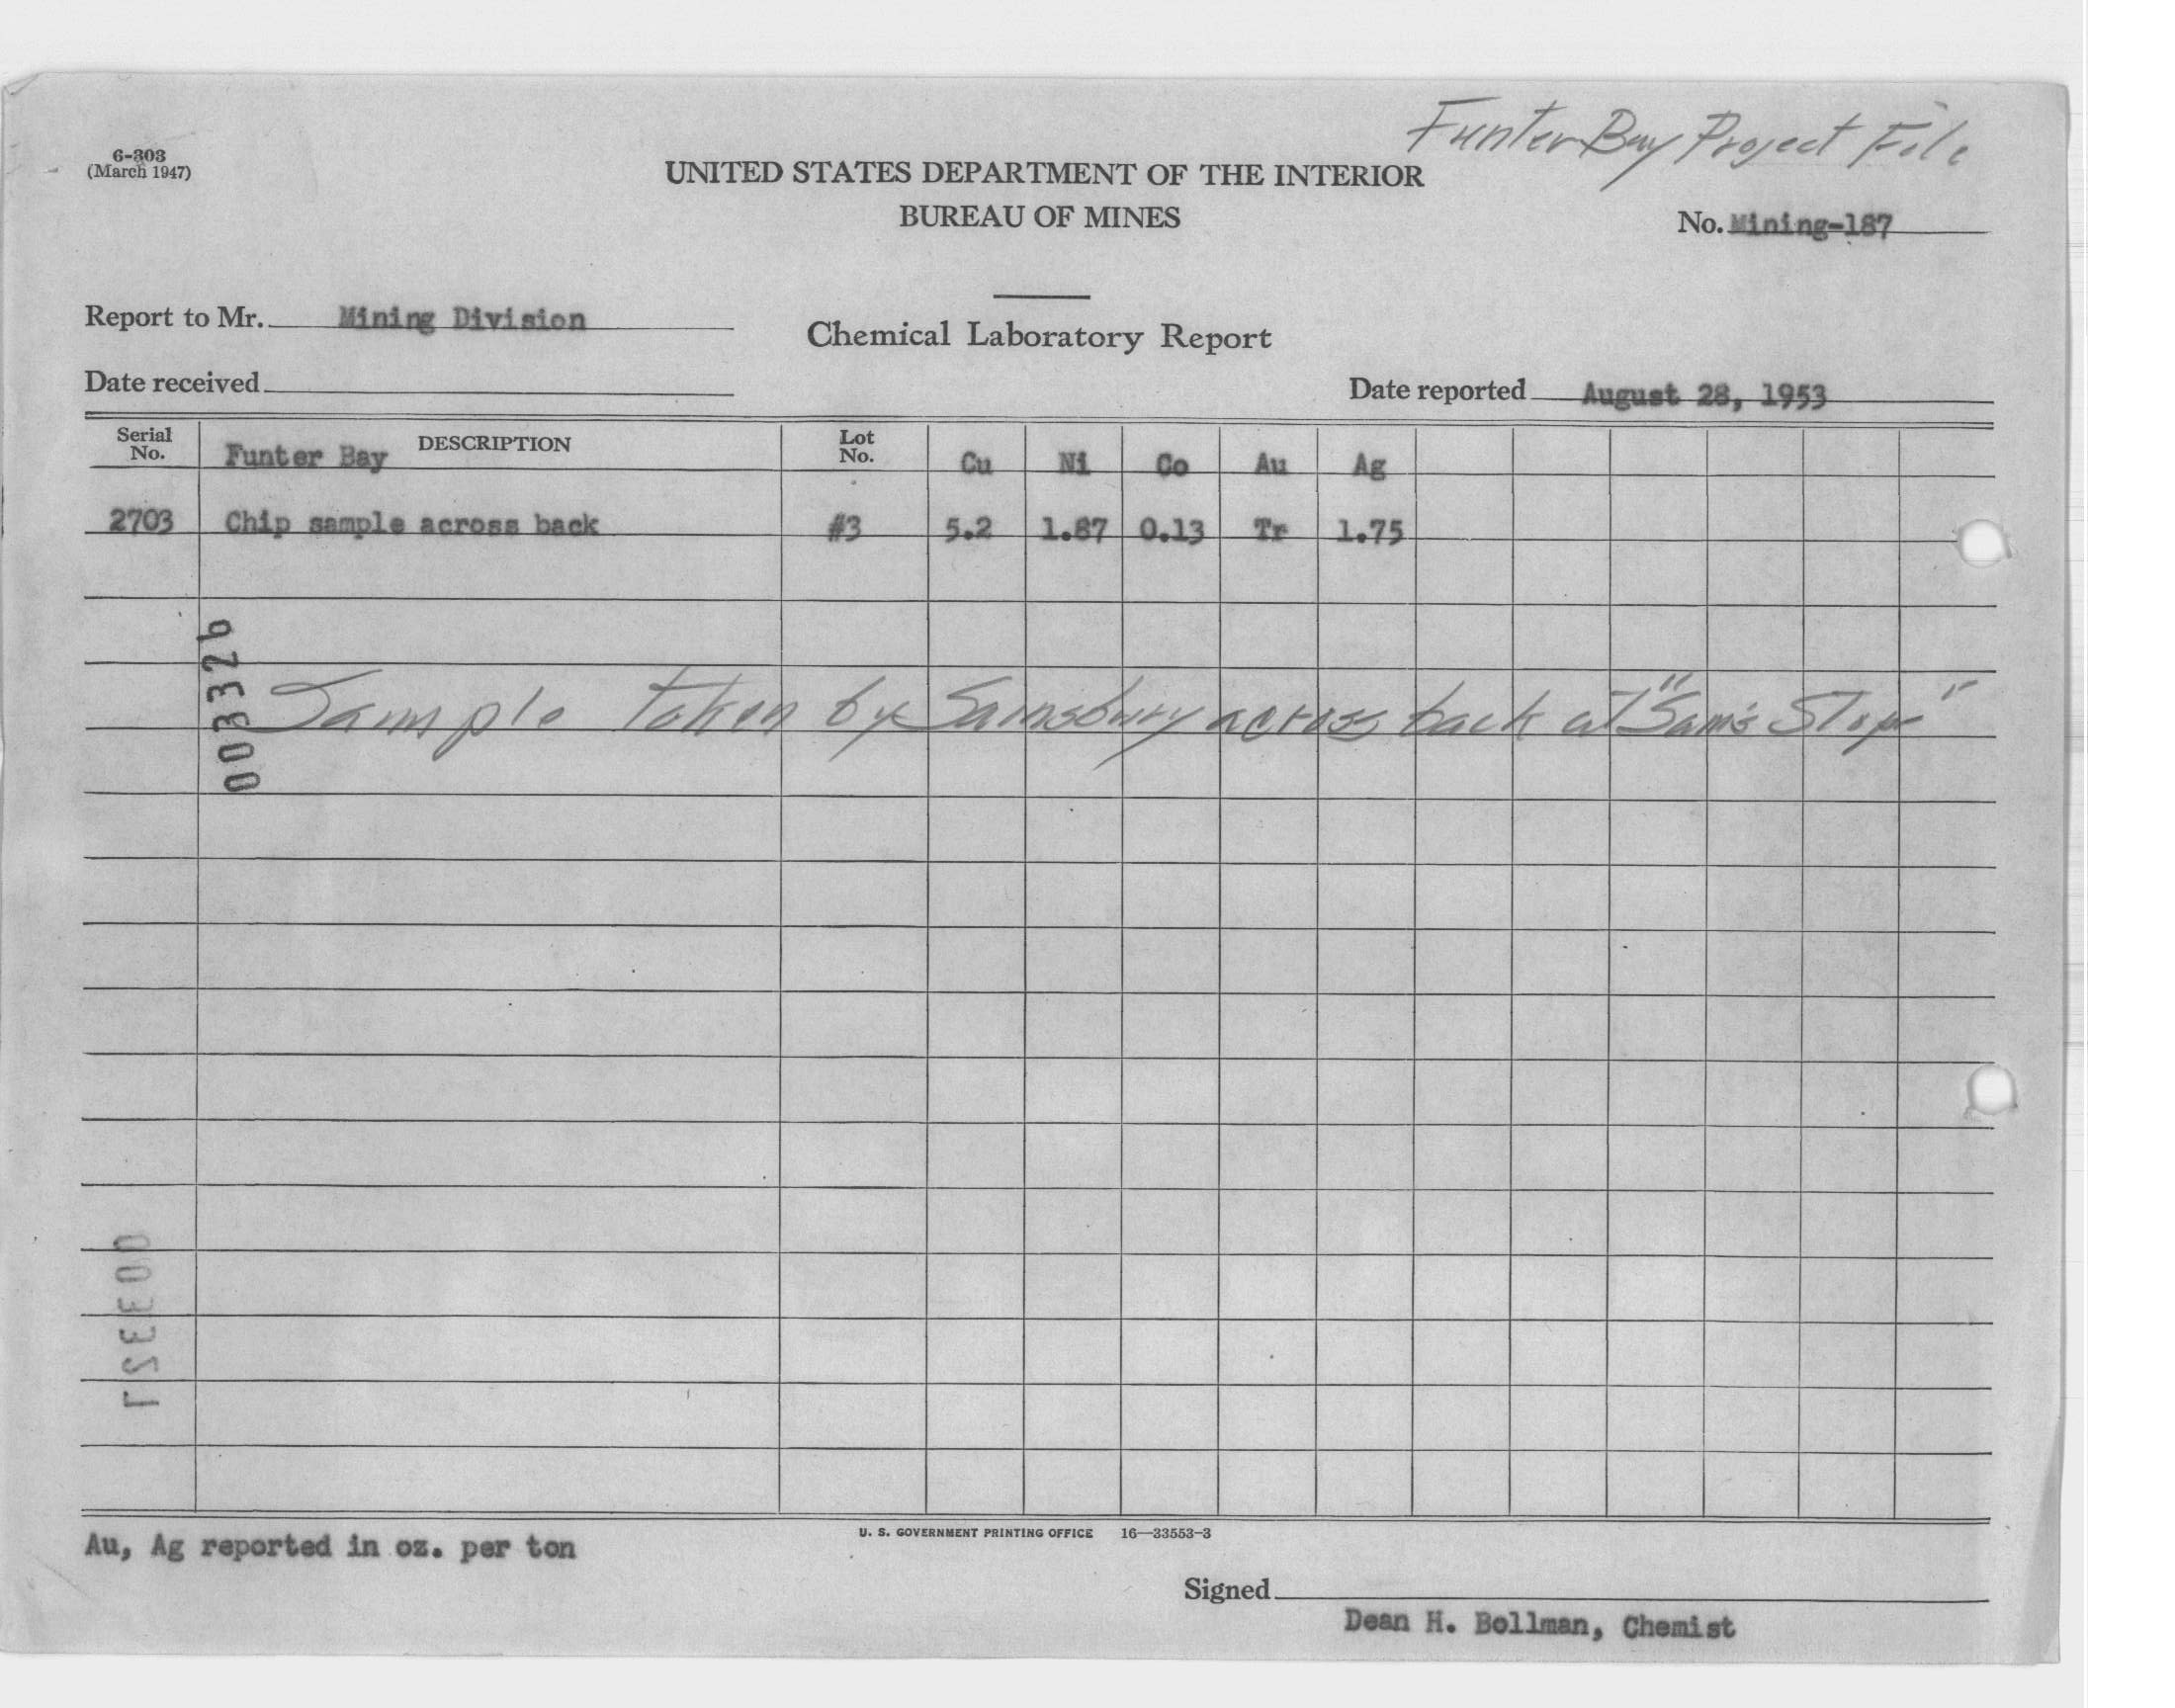 Funter Bay Project File
6-303
(March 1947)
UNITED STATES DEPARTMENT OF THE INTERIOR
BUREAU OF MINES
No. Mining-187
Report to Mr. Mining Division
Chemical Laboratory Report
Date received
Date reported August 28, 1953
Serial No. Funter Bay DESCRIPTION Lot No. Cu Ni Co Au Ag
2703 Chip sample across back #3 5.2 1.87 0.13 Tr 1.75
003326
Sample taken by Sainsbury across back at "Sam's Stope"
003327
Au, Ag reported in oz. per ton
U. S. GOVERNMENT PRINTING OFFICE 16—33553-3
Signed
Dean H. Bollman, Chemist